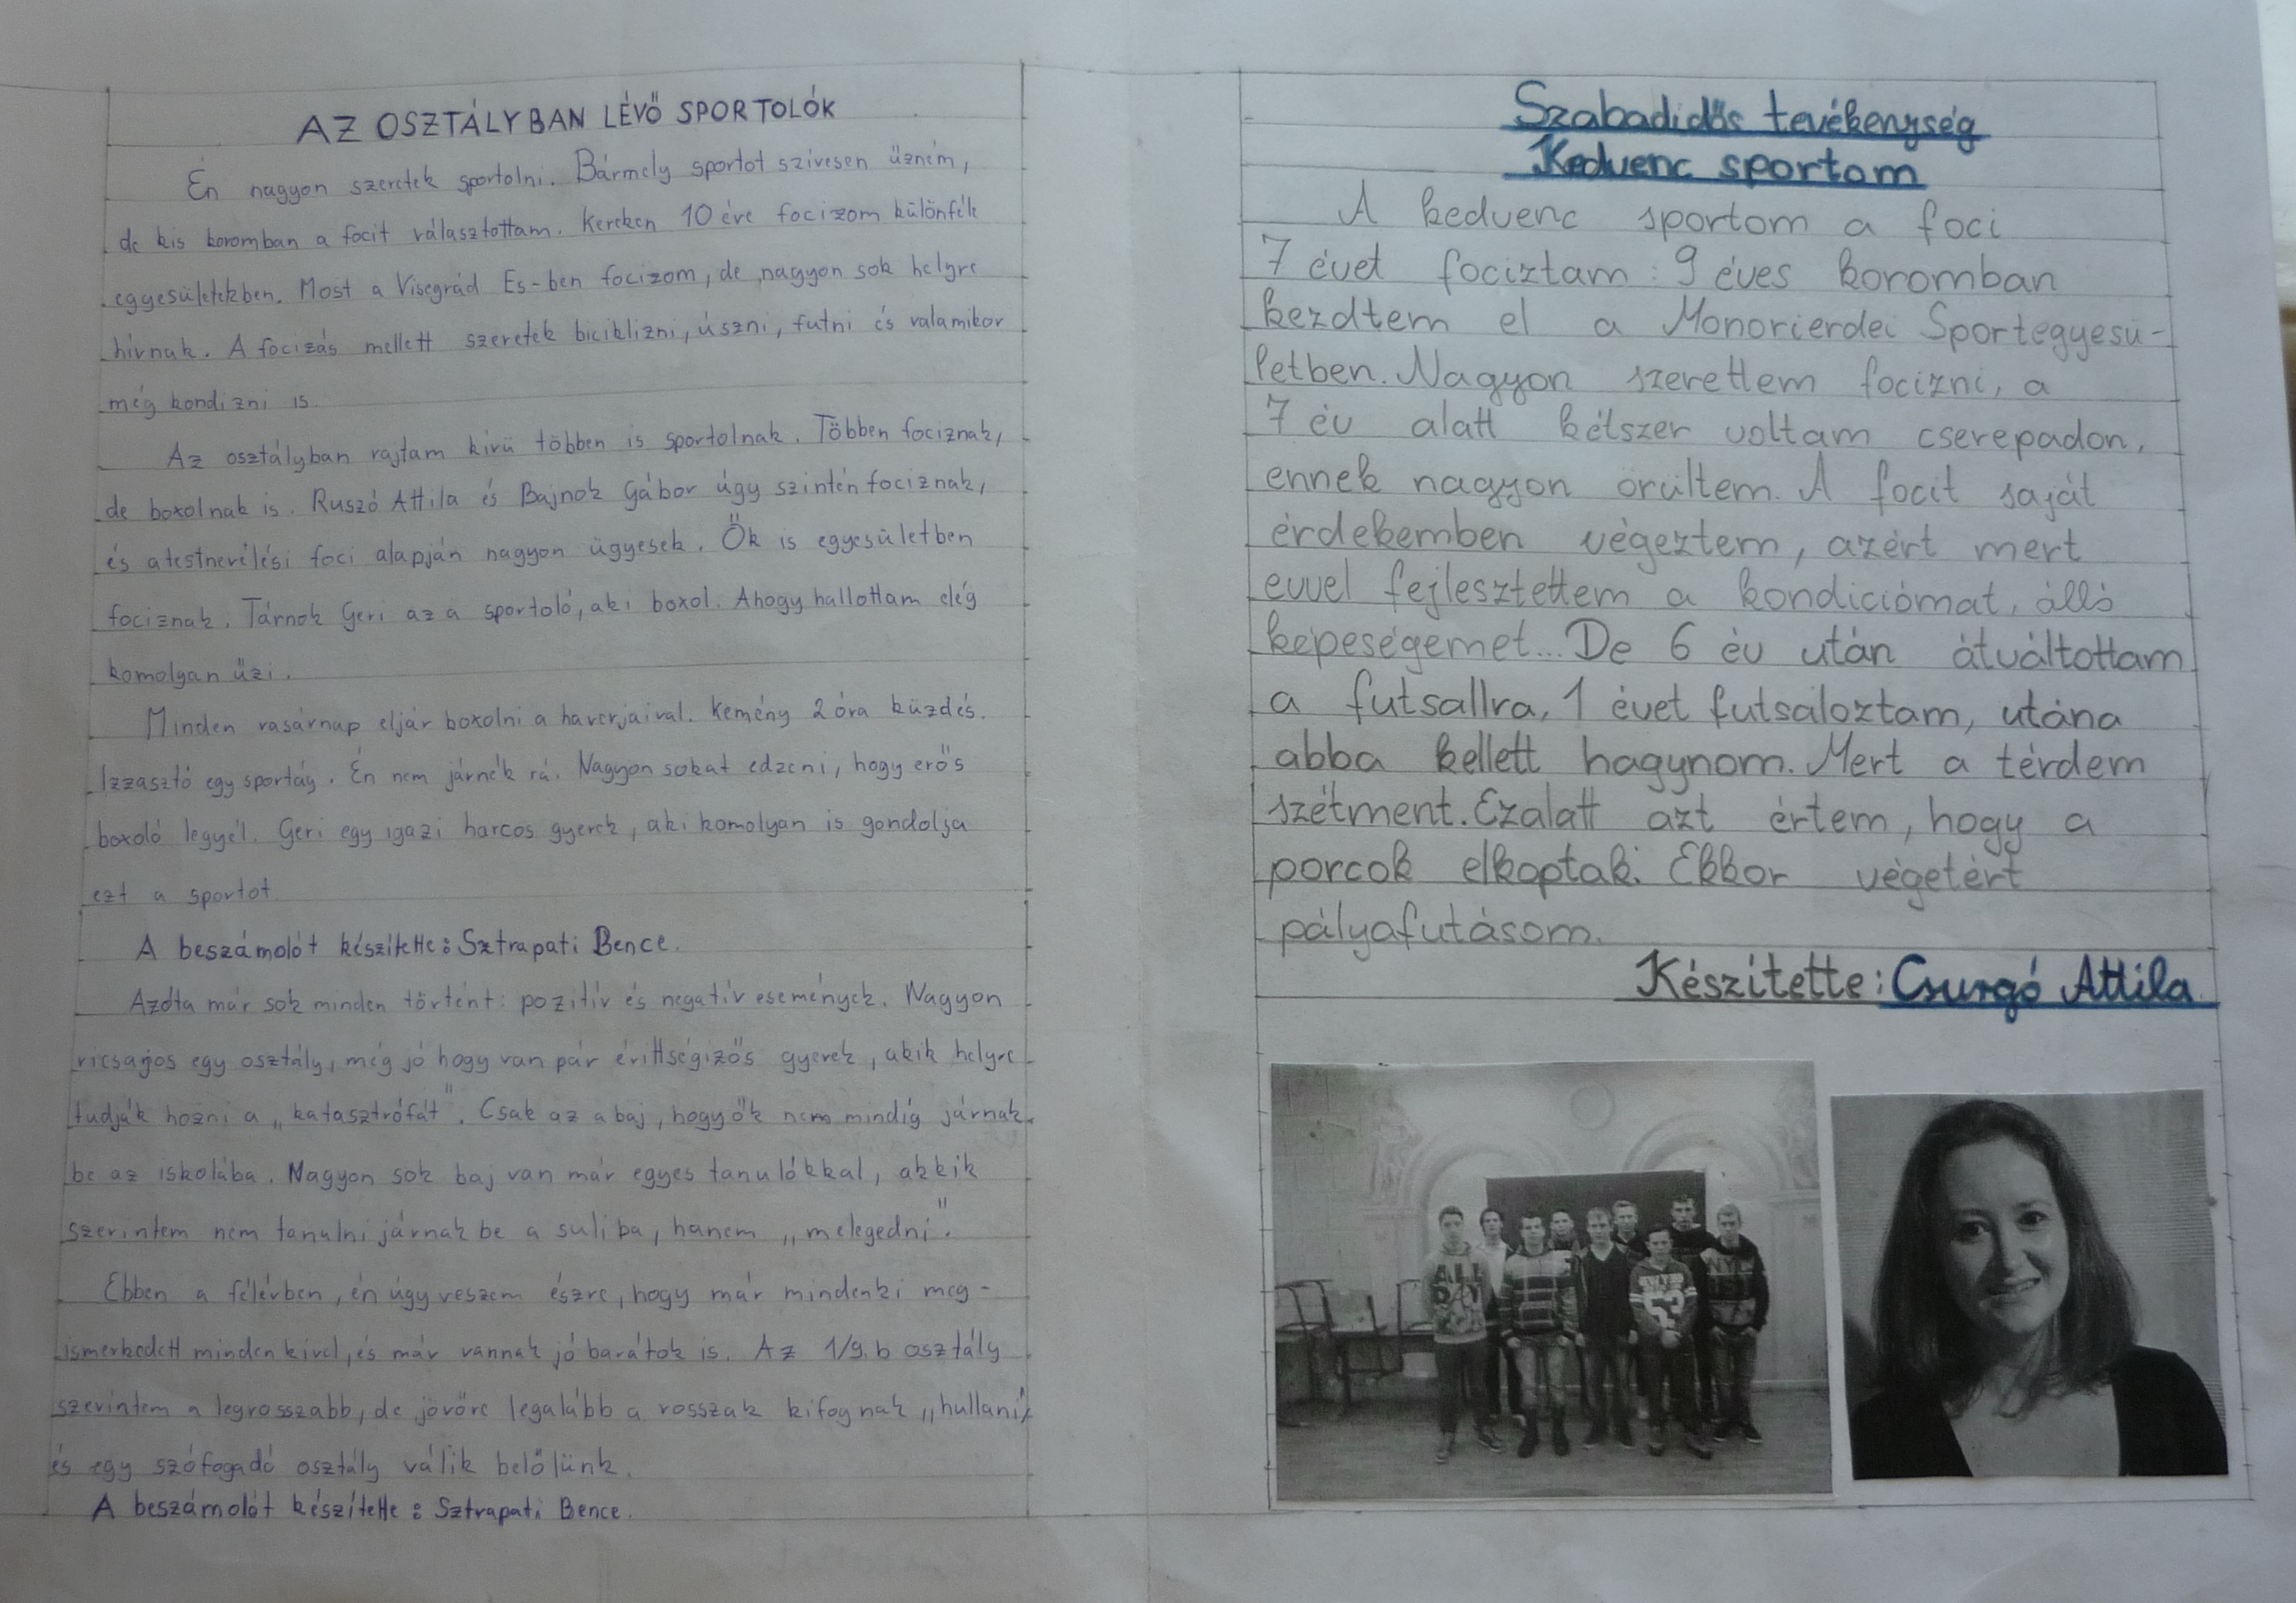 AZ OSZTÁLYBAN LÉVŐ SPORTOLÓK
Én nagyon szeretek sportolni. Bármely sportot szivesen űzném,
de kis koromban a focit választottam. Kereken 10 éve focizom különféle
egyesületekben. Most a Visegrád Es-ben focizom, de nagyon sok helyre
hívnak. A focizás mellett szeretek biciklizni, úszni, futni és valamikor
még kondizni is.
Az osztályban rajtam kívü többen is sportolnak. Többen fociznak,
de boxolnak is. Ruszó Attila és Bajnok Gábor úgy szintén fociznak,
és a testnevélési foci alapján nagyon ügyesek. Ők is egyesületben
fociznak. Tárnok Geri az a sportoló, aki boxol. Ahogy hallottam elég
komolyan űzi.
Minden vasárnap eljár boxolni a haverjaival. Kemény 2 óra küzdés.
Izzasztó egy sportág. Én nem járnék rá. Nagyon sokat edzeni, hogy erős
boxoló legyél. Geri egy igazi harcos gyerek, aki komolyan is gondolja
ezt a sportot.
A beszámolót készítette: Sztrapati Bence.
Azóta már sok minden történt: pozitív és negatív események. Nagyon
ricsajos egy osztály, még jó hogy van pár érittségizős gyerek, akik helyre
tudják hozni a „katasztrófát". Csak az a baj, hogy ők nem mindig járnak
be az iskolába. Nagyon sok baj van már egyes tanulókkal, akkik
szerintem nem tanulni járnak be a suliba, hanem „melegedni".
Ebben a félévben, én úgy veszem észre, hogy már mindenki meg-
ismerkedett mindenkivel, és már vannak jó barátok is. Az 1/9.b osztály
szerintem a legrosszabb, de jövőre legalább a rosszak kifognak „hullani"
és egy szófogadó osztály válik belőlünk.
A beszámolót készítette: Sztrapati Bence.
Szabadidős tevékenység
Kedvenc sportom
A kedvenc sportom a foci
7 évet fociztam: 9 éves koromban
kezdtem el a Monorierdei Sportegyesü-
letben. Nagyon szerettem focizni, a
7 év alatt kétszer voltam cserepadon,
ennek nagyon örültem. A focit saját
érdekemben végeztem, azért mert
evvel fejlesztettem a kondiciómat, álló
képeségemet... De 6 év után átváltottam
a futsallra, 1 évet futsaloztam, utána
abba kellett hagynom. Mert a térdem
szétment. Ezalatt azt értem, hogy a
porcok elkoptak. Ekkor végetért
pályafutásom.
Készitette: Csurgó Attila.
ALL
DAY
53
NYC